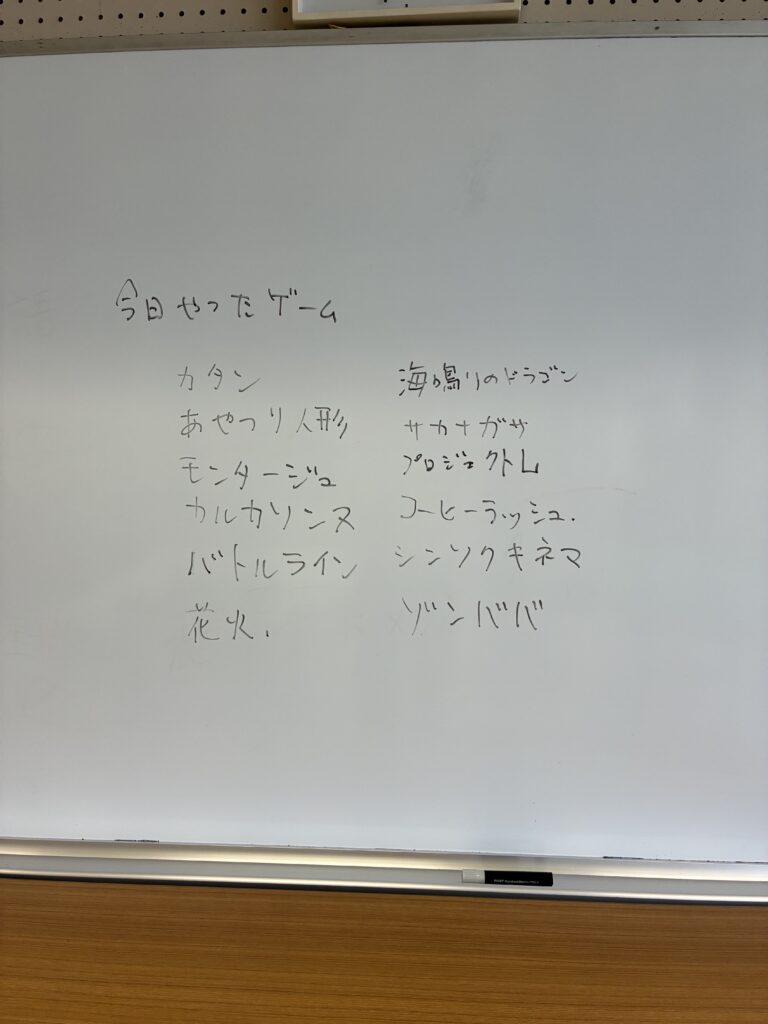 今日やったゲーム
カタン
あやつり人形
モンタージュ
カルカソンヌ
バトルライン
花火.
海鳴りのドラゴン
サカナガサ
プロジェクトL
コーヒーラッシュ.
シンソクキネマ
ゾンババ